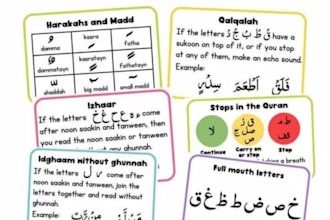 Harakahs and Madd
damma kasra fatha
dammatayn kasratayn fathatayn
shaddah big madd small madd
Qalqalah
If the letters ق ط ب ج د have a
sukoon on top of it, or if you stop
at any of them, make an echo sound.
Example:
Izhaar
If the letters ء ه ع ح غ خ come
after noon saakin and tanween, then
you read the noon saakin or tanween
Stops in the Quran
لا
م
قف
Continue Carry on or stop Stop
a breath
Idghaam without ghunnah
If the letters ل ر come after
noon saakin and tanween, join the
letters together and read without
ghunnah.
Example:
Full mouth letters
خ ص ض ط ظ غ ق